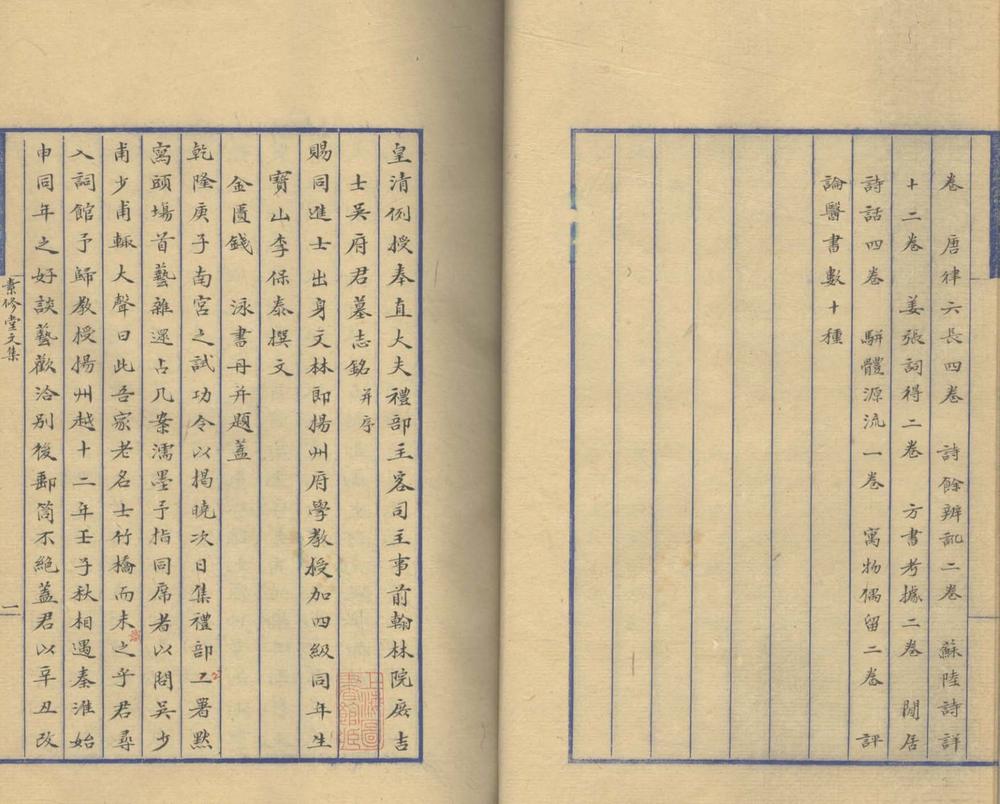 卷　唐律六長四卷　詩餘辨訛二卷　蘇陸詩評
十二卷　姜張詞得二卷　方書考據二卷　閒居
詩話四卷　駢體源流一卷　寓物偶留二卷　評
論醫書數十種
皇清例授奉直大夫禮部主客司主事前翰林院庶吉
士吳府君墓志銘并序
賜同進士出身文林郎揚州府學教授加四級同年生
寶山李保泰撰文
金匱錢　泳書丹并題蓋
乾隆庚子南宮之試功令以揭曉次日集禮部公署默
寫頭場首藝雜遝占几案濡墨予指同席者以問吳少
甫少甫輒大聲曰此吾家老名士竹橋而未識之乎君尋
入詞館予歸教授揚州越十二年壬子秋相遇秦淮始
申同年之好談藝歡洽別後郵筒不絕蓋君以辛丑改
素修堂文集
一